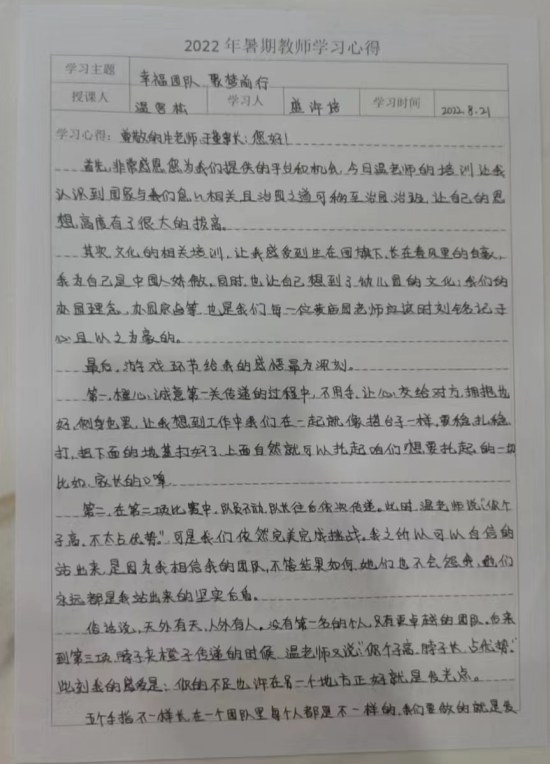 2022年暑期教师学习心得
学习主题 幸福团队 聚梦前行
授课人 温 学习人 学习时间 2022.8.21
学习心得: 尊敬的 老师 董事长:您好!
首先,非常感恩您为我们提供的平台和机会,今日温老师的培训让我
认识到国家与我们息息相关,且治园之道可稍至治国治班,让自己的思
想高度有了很大的拔高。
其实文化的相关培训,让我感受到生在国旗下,长在春风里的自豪,
我为自己是中国人骄傲。同时,也让自己想到了幼儿园的文化:我们的
办园理念、办园宗旨等,也是我们每一位 老师应该时刻铭记于
心且以之为豪的。
最后,游戏环节给我的感悟最为深刻。
第一,橙心诚意第一关传递的过程中,不用手,让心交给对方,拥抱
好, 让我想到工作中我们在一起就像搭台子一样,要稳扎稳
打,把下面的地基打好了,上面自然就可以托起咱们想要托起的一切
比如:家长的口碑
第二,在第二项比赛中,队员不动,队长往后依次传递。此时,温老师说:“你个
子高,不太占优势。”可是我们依然完美完成挑战。我之所以可以自信的
站出来,是因为我相信我的团队,不管结果如何,她们也不会怨我,她们
永远都是我站出来的坚实后盾。
俗话说,天外有天,人外有人。没有第一名的个人,只有更卓越的团队。当来
到第三项,脖子夹橙子传递的时候,温老师又说:“你个子高,脖子长,占优势。”
此刻我的感受是:你的不足也许在另一个地方正好就是发光点。
五个手指不一样长,在一个团队里每个人都是不一样的,我们要做的就是发